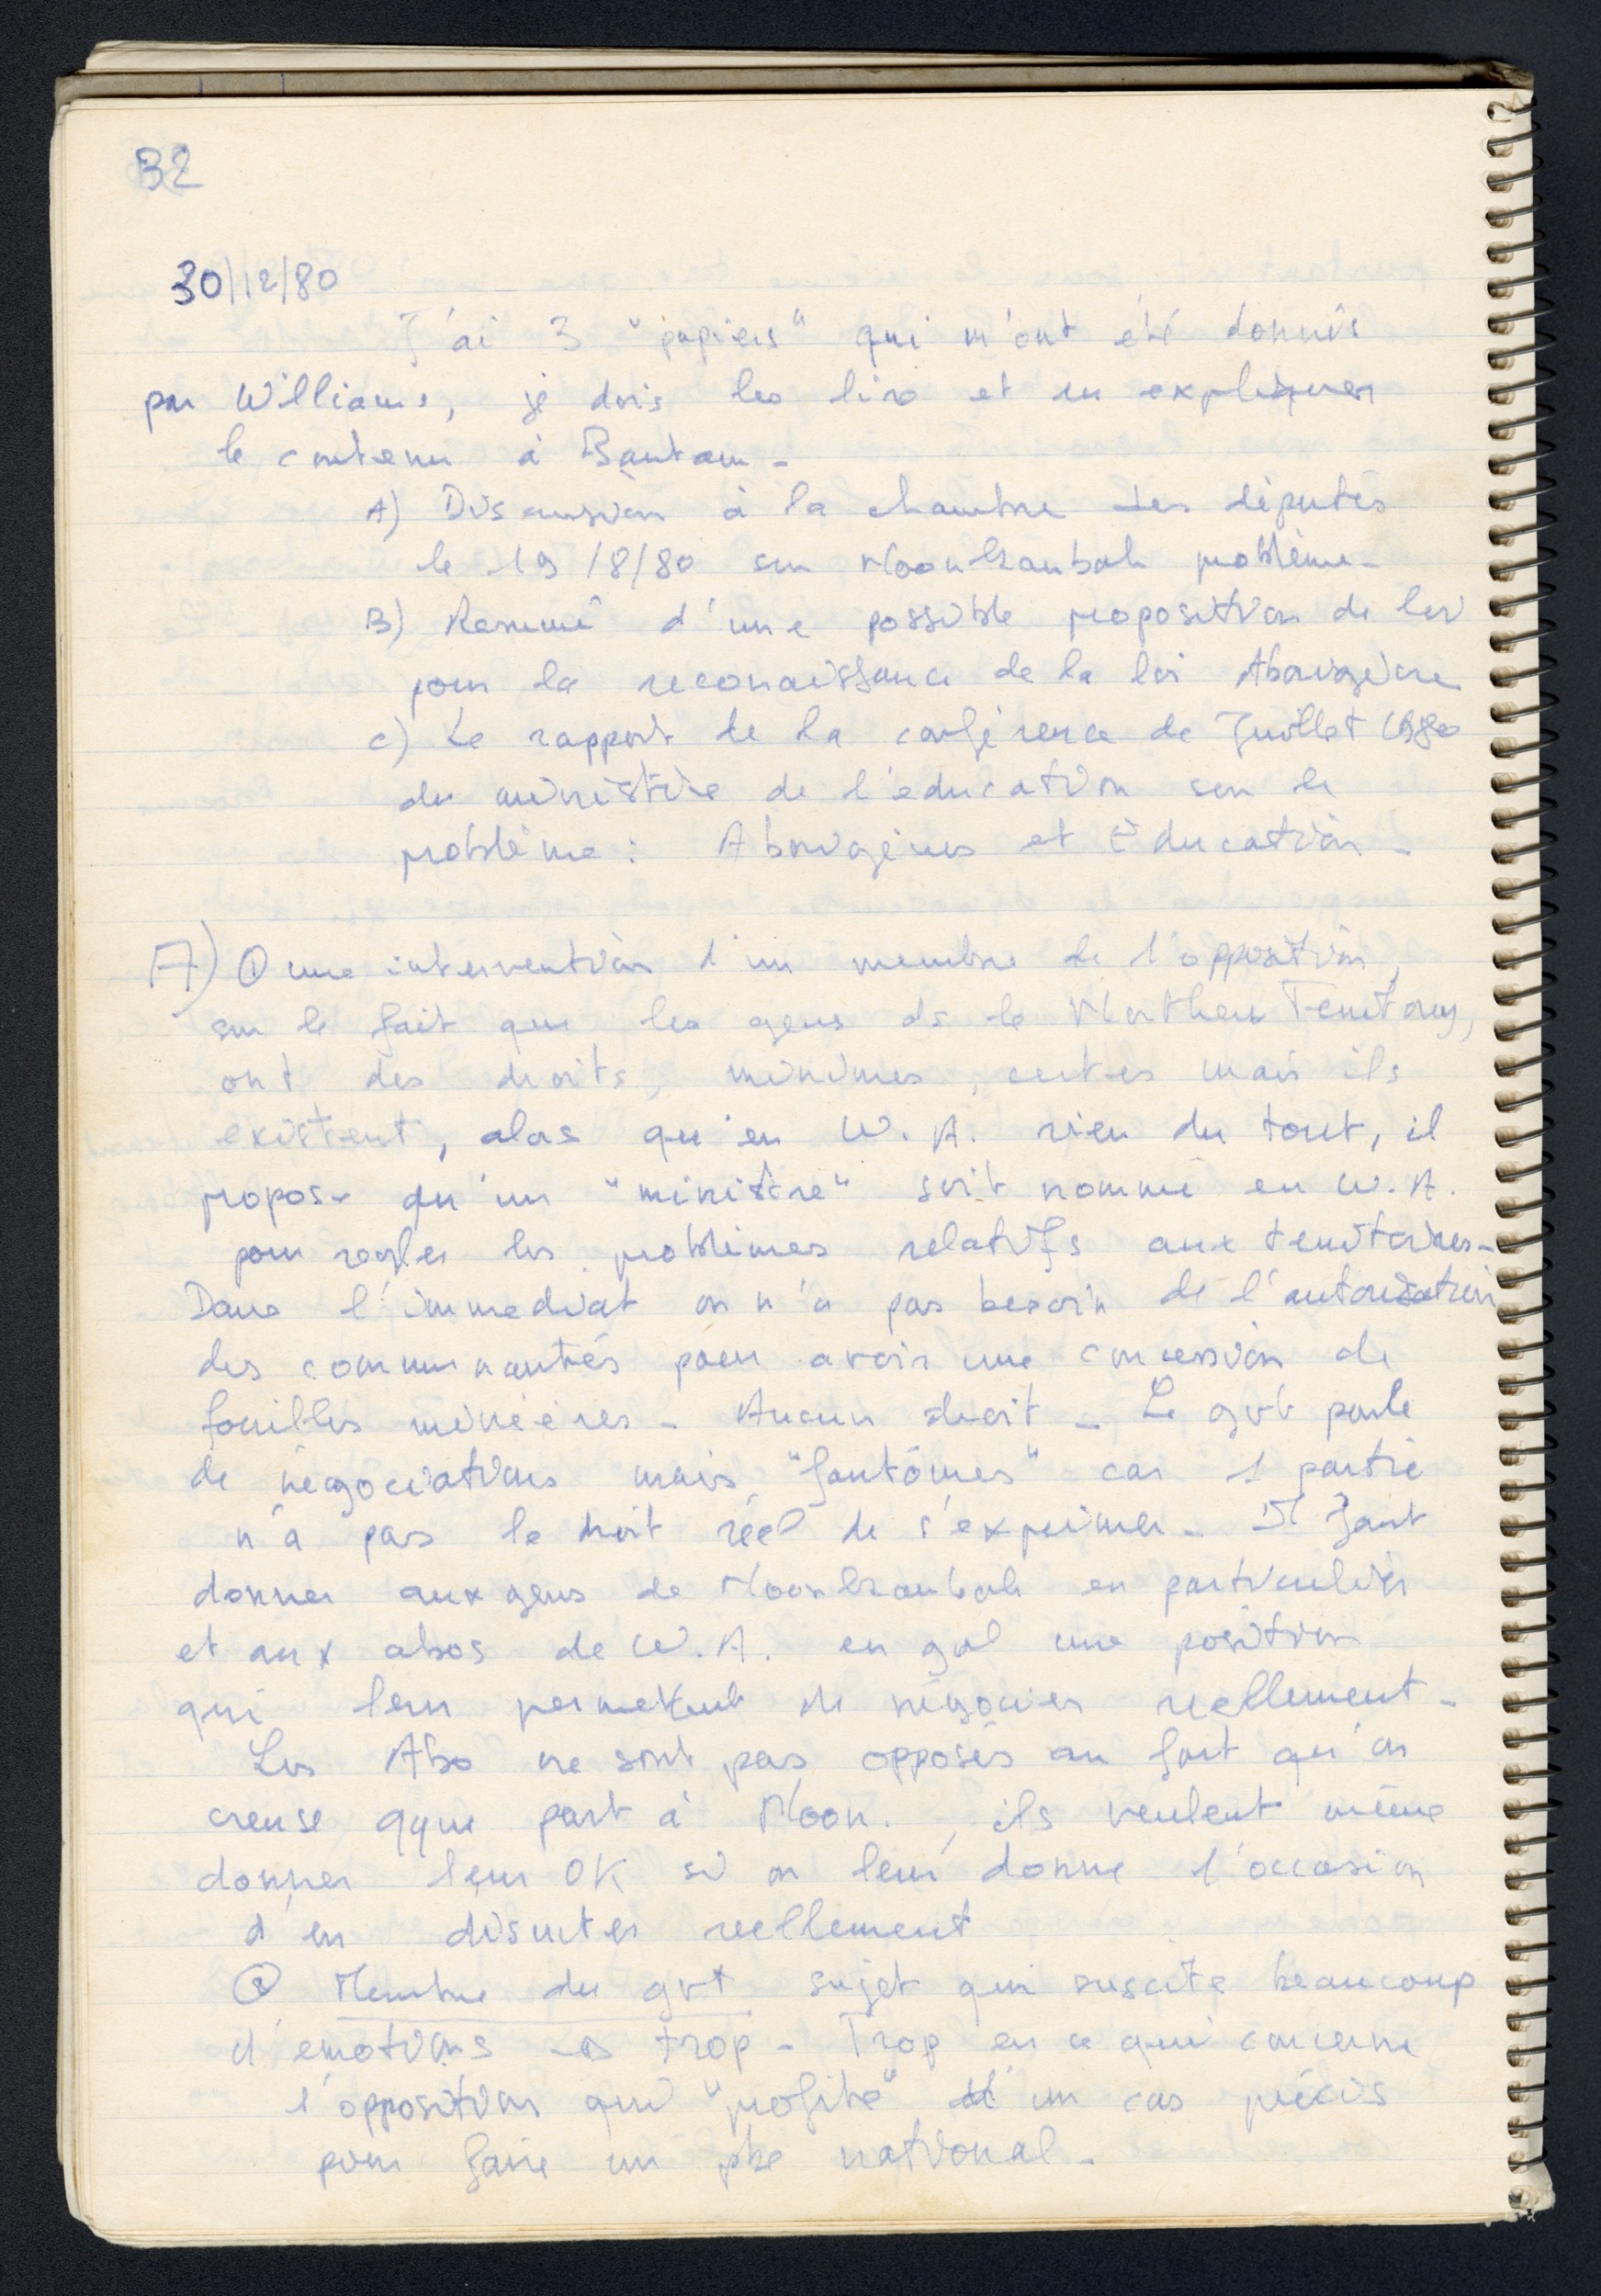 32
30/12/80
J'ai 3 "papiers" qui m'ont été donnés
par Williams, je dois les lire et en expliquer
le contenu à Bantam -
A) Discussion à la chambre des députés
le 19/8/80 sur Noonkanbah problème -
B) Resumé d'une possible proposition de loi
pour la reconaissance de la loi Aborigène
C) Le rapport de la conférence de Juillet 1980
du ministère de l'éducation sur le
problème : Aborigènes et Education -
A) ① une intervention d'un membre de l'opposition,
sur le fait que les gens ds le Northern Territory,
ont des droits, minimes, certes mais ils
existent, alors qu'en W. A. rien du tout, il
propose qu'un "ministère" soit nommé en W. A.
pour regler les problèmes relatifs aux territoires -
Dans l'immediat on n'a pas besoin de l'autorisation
des communautés pour avoir une concession de
fouilles minières - Aucun droit - Le gvt parle
de négociations mais "fantômes" car 1 partie
n'a pas le droit réel de s'exprimer - Il faut
donner aux gens de Noonkanbah en particulier
et aux abos de W. A. en gal une position
qui leur permettent de négocier reellement -
Les Abo ne sont pas opposés au fait qu'on
creuse qque part à Noon. , ils veulent même
donner leur OK si on leur donne l'occasion
d'en discuter reellement
② Membre du gvt sujet qui suscite beaucoup
d'emotions → trop - Trop en ce qui concerne
l'opposition qui "profite" d'un cas précis
pour faire un pbe national -